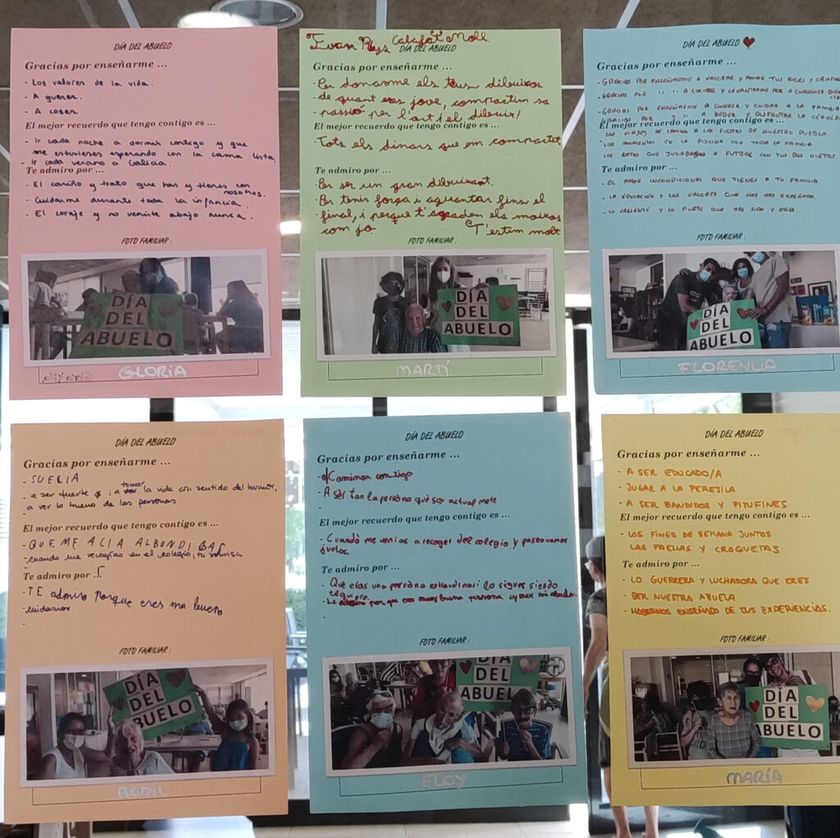 DÍA DEL ABUELO
Gracias por enseñarme ...
- Los valores de la vida.
- A querer.
- A coser.
El mejor recuerdo que tengo contigo es ...
- Ir cada noche a dormir contigo y que
me estuvieses esperando con la cama lista.
- Ir cada verano a Galicia.
Te admiro por ...
- El cariño y trato que has y tienes con
nosotros.
- Cuidarme durante toda la infancia.
- El coraje y no venirte abajo nunca.
FOTO FAMILIAR :
DÍA
DEL
ABUELO
GLORIA
Calafat Moll
DÍA DEL ABUELO
Gracias por enseñarme ...
- Per donarme els teus dibuixos
de quant eres jove, compartim sa
passió per l'art i el dibuix!
El mejor recuerdo que tengo contigo es ...
- Tots els dinars que em compartit
Te admiro por ...
- Per ser un gran dibuixant.
- Per tenir força i aguantar fins el
final, i perque t'agraden els moixos
com jo T'estim molt
FOTO FAMILIAR :
DÍA
DEL
ABUELO
MARTÍ
DÍA DEL ABUELO
Gracias por enseñarme ...
- GRACIAS POR ENSEÑARME A
- GRACIAS POR
- GRACIAS POR ENSEÑARME A QUERER Y CUIDAR A LA FAMILIA
El mejor recuerdo que tengo contigo es ...
A LAS FIESTAS DE NUESTRO PUEBLO
- LOS MOMENTOS EN LA PISCINA CON TODA LA FAMILIA
- LOS RATOS QUE JUGABAS A FUTBOL CON TUS DOS NIETOS
Te admiro por ...
- EL AMOR INCONDICIONAL QUE TIENES A TU FAMILIA
- LA EDUCACIÓN Y LOS VALORES QUE NOS HAS ENSEÑADO
- LO VALIENTE Y LO FUERTE QUE HAS SIDO Y ERES
FOTO FAMILIAR :
DÍA
DEL
ABUELO
FLORENCIA
DÍA DEL ABUELO
Gracias por enseñarme ...
- SUECIA
tomar
- a ser fuerte y a la vida con sentido del humor,
a ver lo bueno de las personas
-
El mejor recuerdo que tengo contigo es ...
- QUE ME ACIA ALBONDIGAS
- cuando me recogías en el colegio, tu sonrisa
Te admiro por ...
- TE admiro Porque eres mu bueno
- cuidarnos
-
FOTO FAMILIAR :
DÍA
DEL
BUELO
BODIL
DÍA DEL ABUELO
Gracias por enseñarme ...
- Caminar contigo
- A ser tan la persona que soy actual mete
-
El mejor recuerdo que tengo contigo es ...
- Cuando me venias a recoger del colegio y paseavamos
juntos.
Te admiro por ...
- Que eras una persona extraordinari lo sigues siendo
te quiero.
- Le admiro por que era muy buena persona
-
FOTO FAMILIAR :
DÍA
DEL
ABUEL
ELOY
DÍA DEL ABUELO
Gracias por enseñarme ...
- A SER EDUCADO/A
- JUGAR A LA PEREJILA
- A SER BANDIDOS Y PITUFINES
El mejor recuerdo que tengo contigo es ...
- LOS FINES DE SEMANA JUNTOS
LAS PAELLAS Y CROQUETAS
Te admiro por ...
- LO GUERRERA Y LUCHADORA QUE ERES
- SER NUESTRA ABUELA
- HABERNOS ENSEÑADO DE TUS EXPERIENCIAS.
FOTO FAMILIAR :
DÍA
DEL
ABUELO
MARÍA